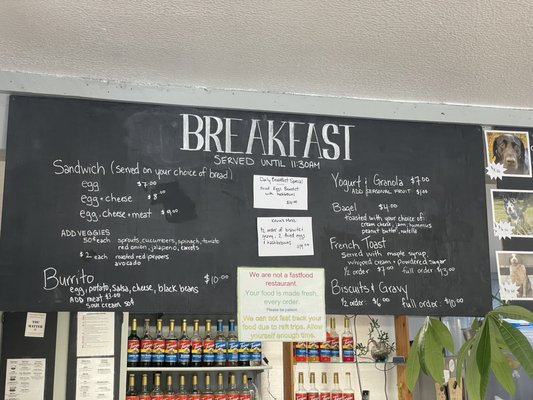 BREAKFAST
SERVED UNTIL 11:30AM
Sandwich (served on your choice of bread)
egg $7.00
egg + cheese $8.00
egg, cheese + meat $9.00
ADD VEGGIES
50¢ each sprouts, cucumbers, spinach, tomato
red onion, jalapeno, carrots
$2 each roasted red peppers
avocado
Burrito $10.00
egg, potato, salsa, cheese, black beans
ADD meat $3.00
Daily Breakfast Special
Fried Eggs Breakfast
with hashbrowns
1/2 order of biscuits +
gravy, 2 fried eggs
+ hashbrowns
We are not a fastfood
restaurant.
Your food is made fresh,
every order.
Please be patient.
We can not try to break
your food due to raft trips.
Thank you for understanding!
Yogurt & Granola $7.00
ADD SEASONAL FRUIT $1.00
Bagel $4.00
toasted with your choice of:
creme cheese, jam, hummus
peanut butter, nutella
French Toast
Served with maple syrup
whipped cream + powdered sugar
1/2 order $7.00 full order $13.00
Biscuits & Gravy
1/2 order $6.00 full order $10.00